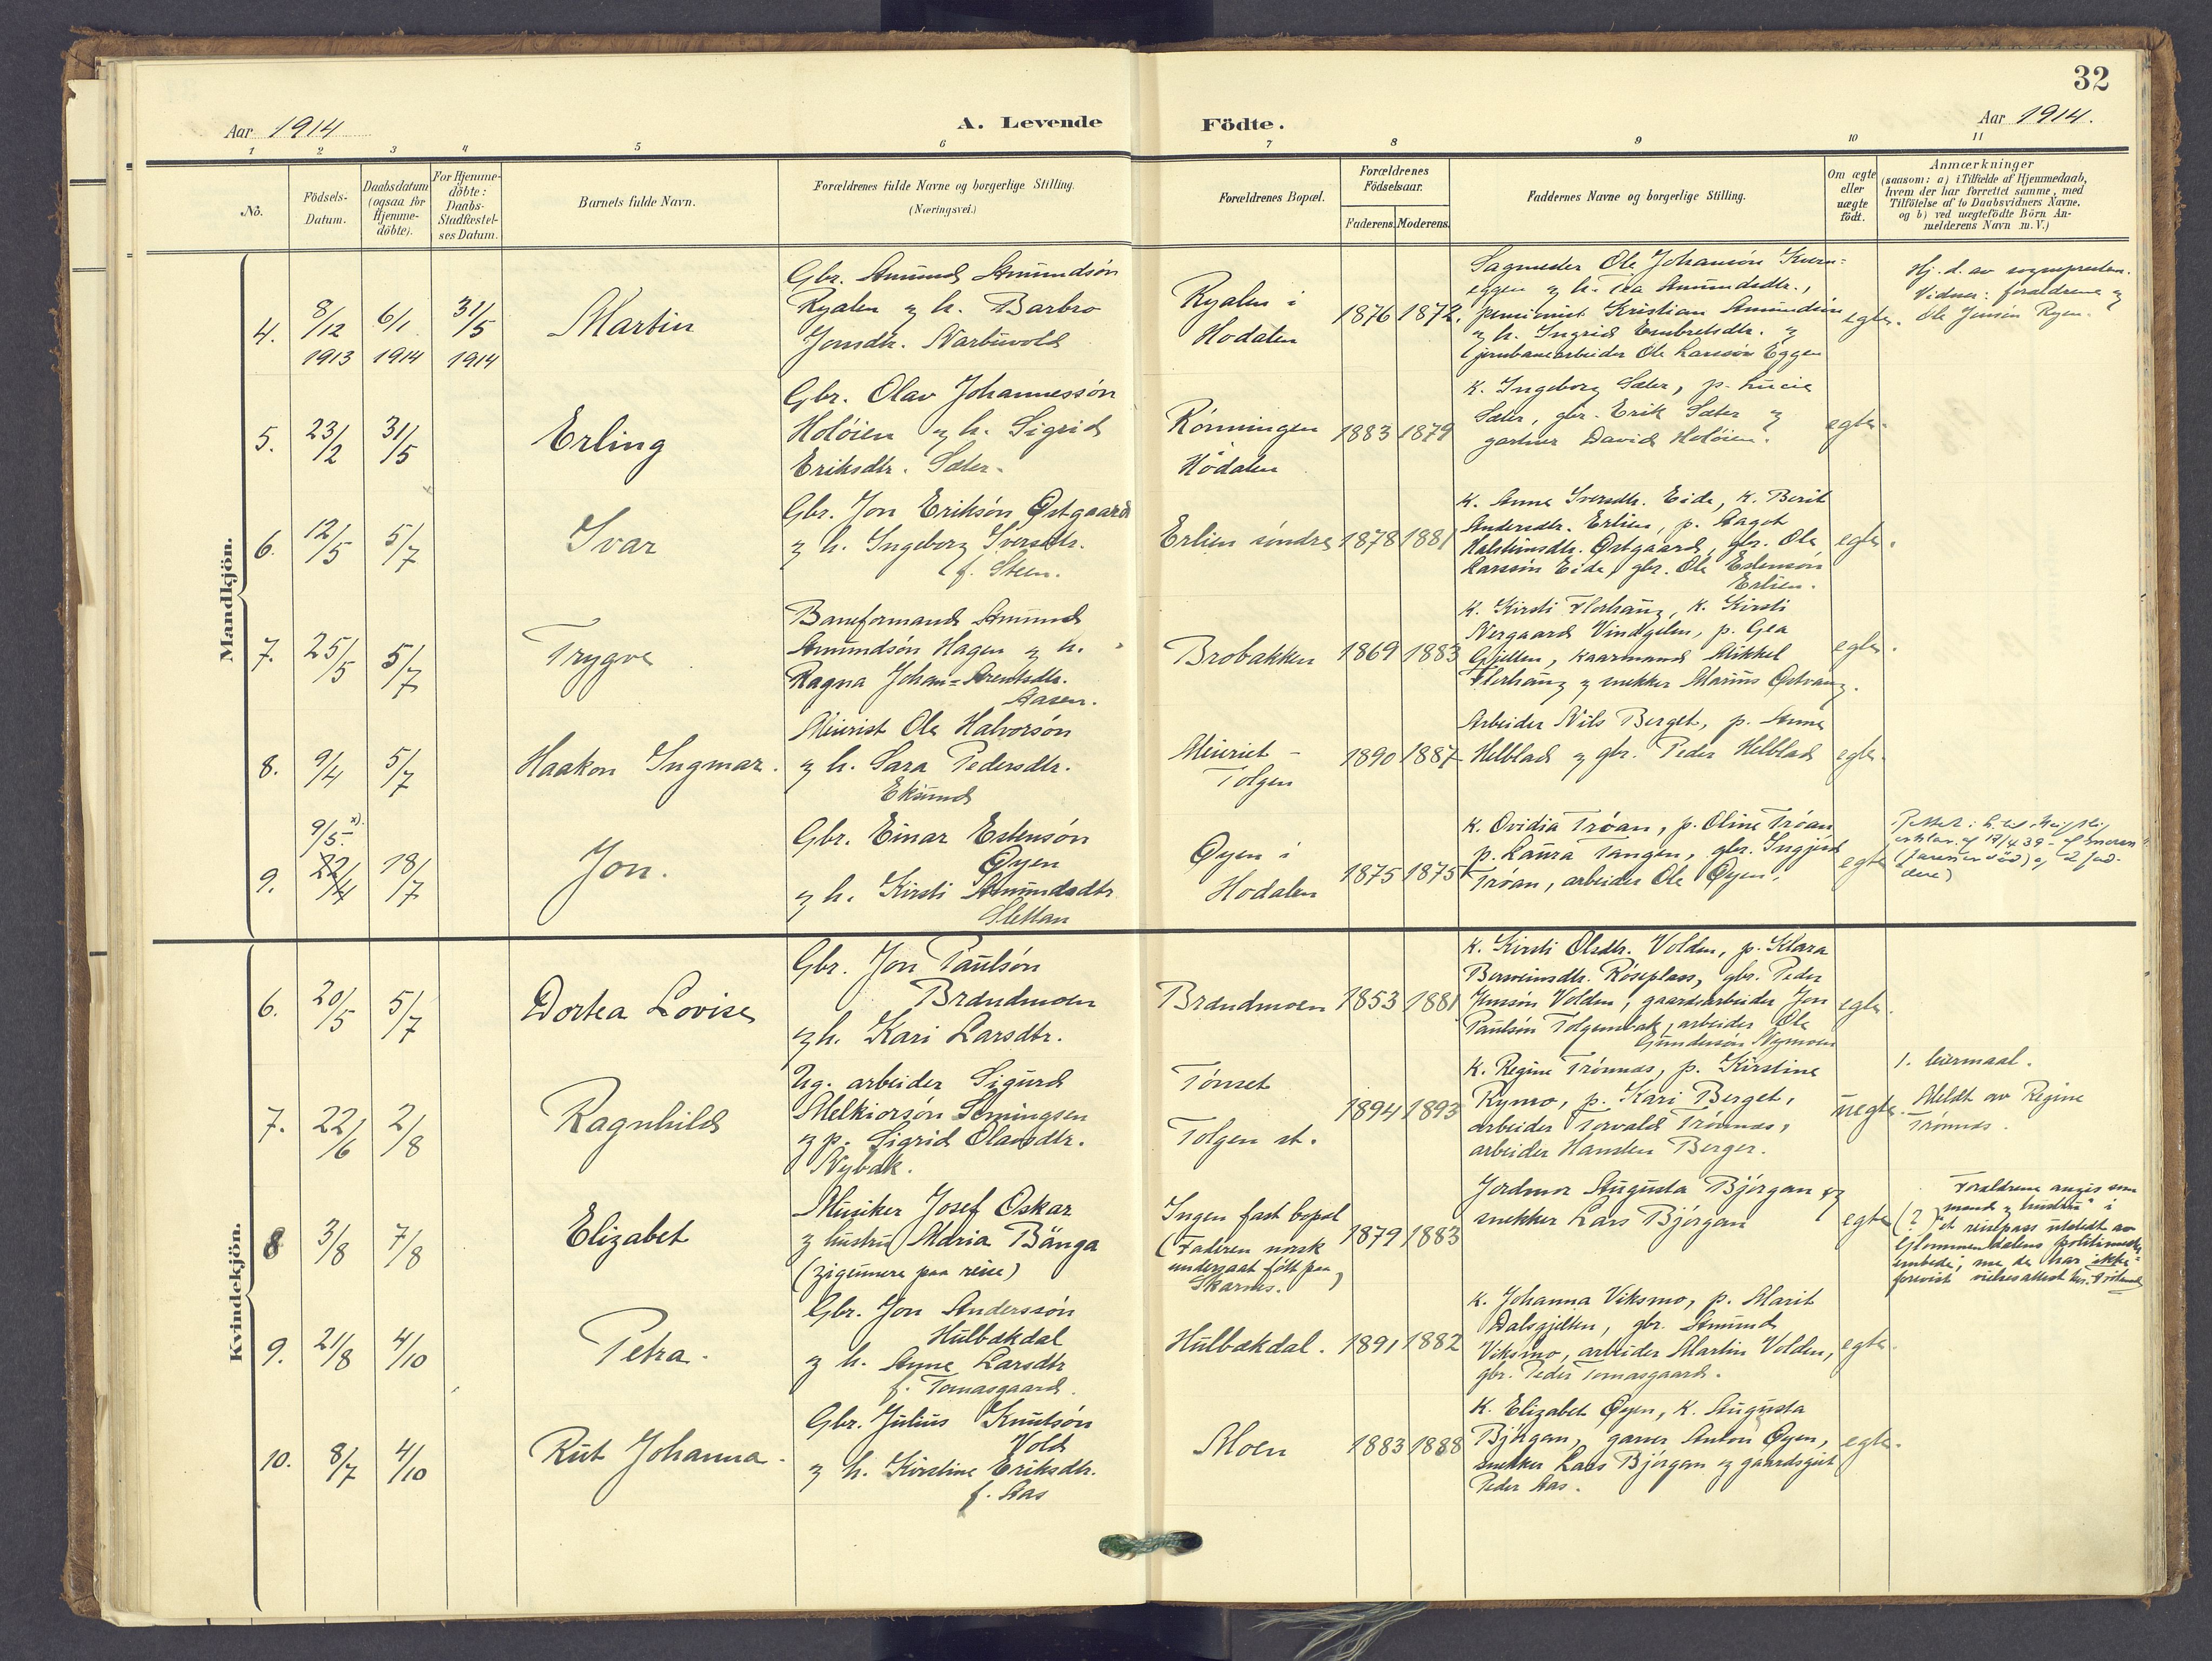 32
Aar 1914
A. Levende Födte.
Aar 1914.
1 2 3 4 5 6 7 8 9 10 11
No.
Födsels-Datum.
Daabsdatum (ogsaa for Hjemme-döbte).
For Hjemme-döbte: Daabs-Stadfæstel-ses Datum.
Barnets fulde Navn.
Forældrenes fulde Navne og borgerlige Stilling.
(Næringsvei.)
Forældrenes Bopæl.
Forældrenes Födselsaar.
Faderens. Moderens.
Faddernes Navne og borgerlige Stilling.
Om ægte eller uægte födt.
Anmærkninger
(saasom: a) i Tilfælde af Hjemmedaab,
hvem der har forrettet samme, med
Tilföielse af to Daabsvidners Navne,
og b) ved uægtefödte Börn An-
melderens Navn m. V.)
Mandkjön.
4.
8/12 1913
6/1 1914
31/5 1914
Martin
Gbr. Amund Amundsön
Ryalen og h. Barbro
Jonsdtr. Narbuvold
Ryalen i
Hodalen
1876 1872.
Sagmester Ole Johansön Kvern=
eggen og h. Tea Amundsdtr.,
Kristian Amundsön
og h. Ingrid Embretsdtr. og
jernbanearbeider Ole Larssön Eggen
egte.
Hj. d. av sognepresten.
Vidner: forældrene og
Ole Jonsön Ryen.
5.
23/2
31/5
Erling
Gbr. Olav Johannessön
Holöien og h. Sigrid
Eriksdtr. Sæter.
Rönningen
Hodalen
1883 1879
K. Ingeborg Sæter, p. Lucie
Sæter, gbr. Erik Sæter og
gartner David Holöien.
egte.
6.
12/5
5/7
Ivar
Gbr. Jon Eriksön Østgaard
og h. Ingeborg Iversdtr.
f. Steen.
Erlien söndre
1878 1881
K. Anne Iversdtr. Eide, K. Berit
Andersdtr. Erlien, p. Aagot
Halsteinsdtr. Østgaard, gbr. Ole
Larssön Eide, gbr. Ole Estensön
Erlien.
egte.
7.
25/5
5/7
Trygve
Baneformand Amund
Amundsön Hagen og h.
Ragna Johan=Arentsdtr.
Aasen.
Brobakken
1869 1883
K. Kirsti Flerhaug, K. Kirsti
Nergaard Vindgilen, p. Gea
Gjelten, kaarmand Mikkel
Flerhaug og snekker Marius Østvang.
egte.
8.
9/4
5/7
Haakon Ingmar.
Meierist Ole Halvorsön
og h. Sara Pedersdtr.
Eksund
Meieriet -
Tolgen
1890 1887
Arbeider Nils Berget, p. Anne
Helblad og gbr. Peder Helblad
egte.
9.
9/5 x).
22/4
18/7
Jon.
Gbr. Einar Estensön
Øyen
og h. Kirsti Amundsdtr
Slettan
Øyen i
Hodalen
1875 1875
K. Ovidia Tröan, p. Oline Tröan
p. Laura Tangen, gbr. Ingjerd
Tröan, arbeider Ole Øyen.
egte
erklær. af 17/4 39 - af moren
(faren er död) og 2 fad-
dere)
Kvindekjön.
6.
20/5
5/7
Dortea Lovise
Gbr. Jon Paulsön
Brændmoen
og h. Kari Larsdtr.
Brændmoen
1853 1881
K. Kirsti Olsdtr. Volden, p. Klara
Röseplass, gbr. Peder
Jonsson Volden, gaardsarbeider Jon
Paulsön Tolgensbak, arbeider Ole
Gundersön Nymoen
egte.
7.
22/6
2/8
Ragnhild
Ug. arbeider Sigurd
Melkiorsön Semingsen
og p. Sigrid Olavsdtr.
Nybak.
Tönset
Tolgen st.
1894 1893
K. Regine Trönnes, p. Kirstine
Rymo, p. Kari Berget,
arbeider Torvald Trönnes,
arbeider Hansten Berger.
uegte.
1. leiermaal.
Meldt av Regine
Trönnes.
8
3/8
7/8
Elizabet
Musiker Josef Oskar
og hustru Maria Bänga
(zigeunere paa reise)
Ingen fast bopæl
(Faderen norsk
undersaat född paa
Skarnes.)
1879 1883
Jordmor Augusta Björgan og
snekker Lars Björgan
egte
(?)
Forældrene angis som
"mand og hustru" i
et reisepass utstedt av
Glommendalens politimester=
embede, me de har ikke
forevist vielsesattest
9.
21/8
4/10
Petra.
Gbr. Jon Anderssön
Hulbækdal
og h. Anne Larsdtr
f. Tomasgaard.
Hulbækdal.
1891 1882
K. Johanna Viksmo, p. Marit
Dalsgjelten, gbr. Amund
Viksmo, arbeider Martin Volden,
gbr. Peder Tomasgaard.
egte.
10.
8/7
4/10
Rut Johanna.
Gbr. Julius Knutsön
Vold
og h. Kirstine Eriksdtr.
f. Aas
Moen
1883 1888
K. Elizabet Øyen, K. Augusta
Björgan, garver Anton Øyen,
snekker Lars Björgan og gaardsgut
Peder Aas.
egte.